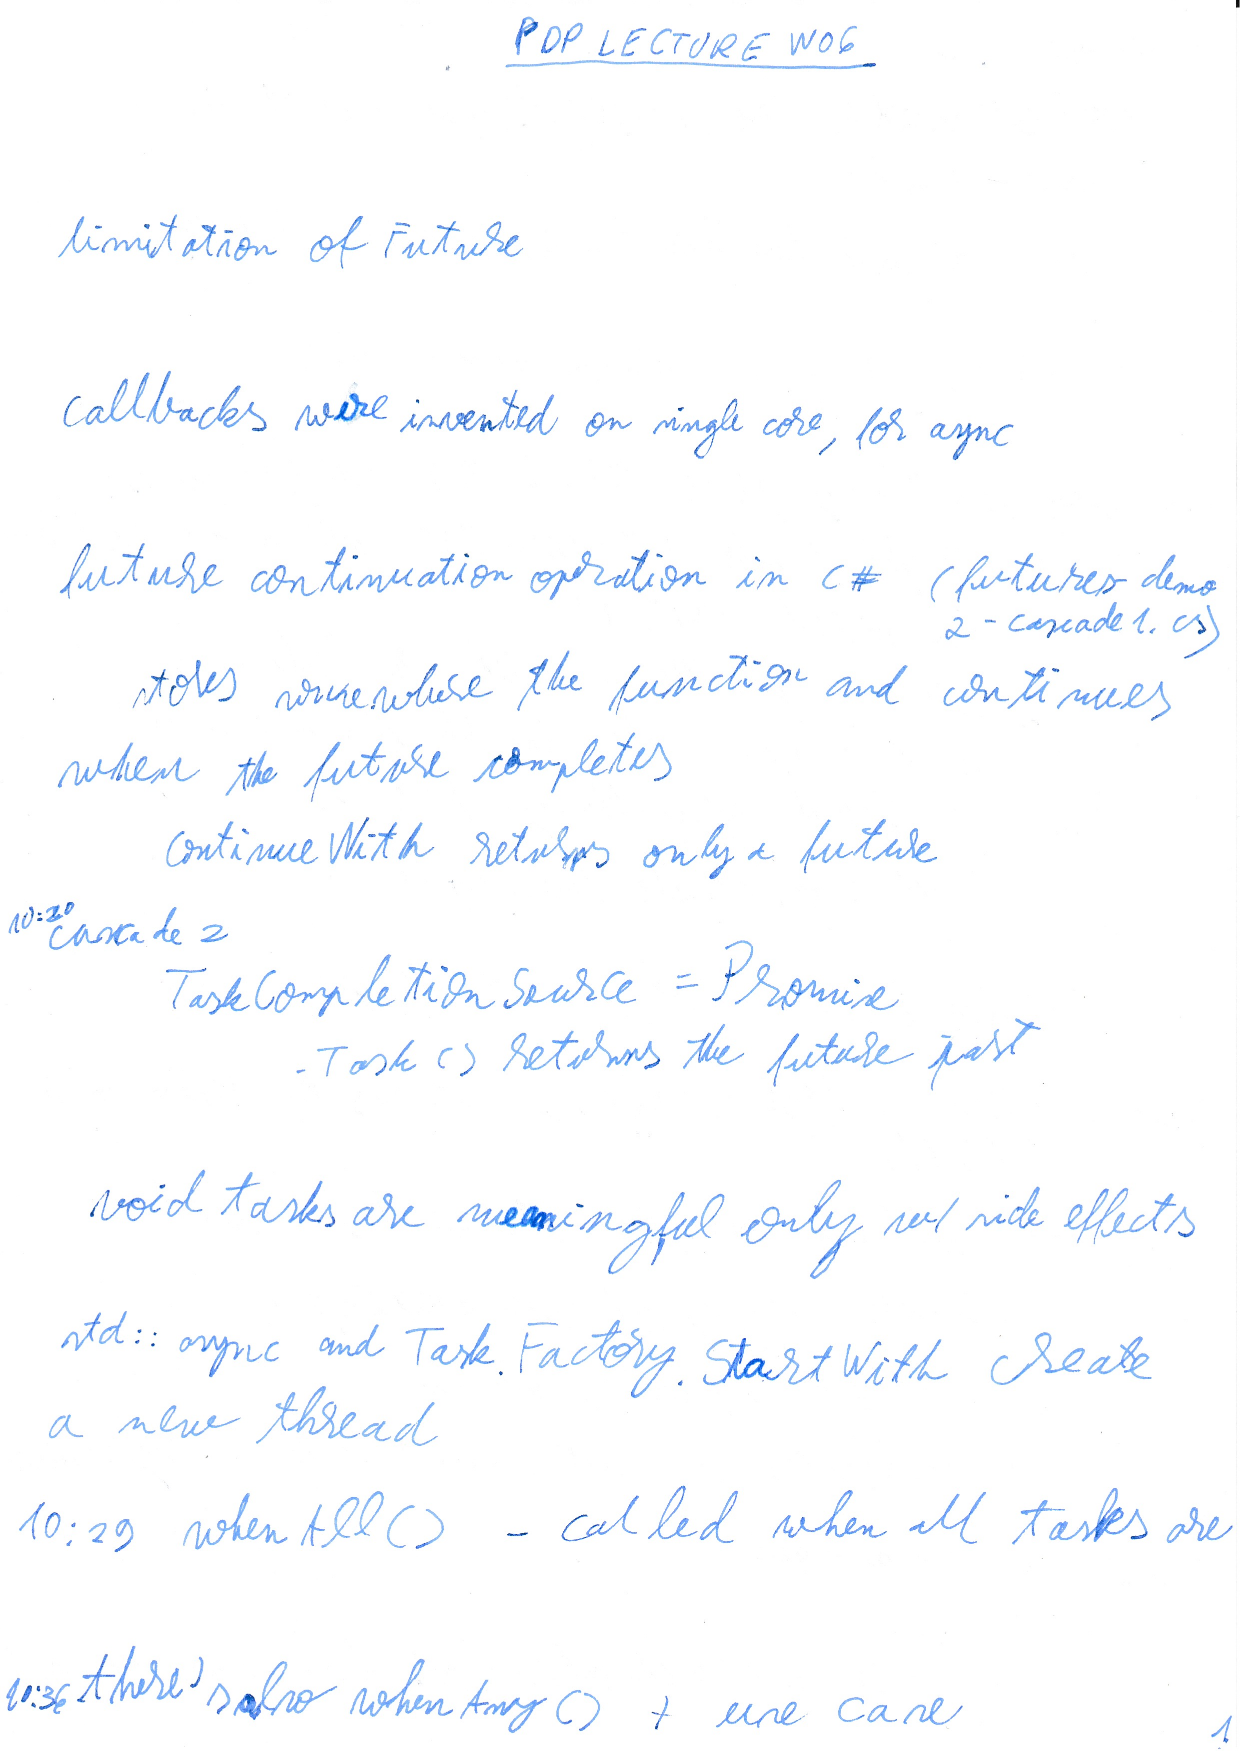 PDP LECTURE W06
limitation of Future
callbacks were invented on single core, for async
future continuation operation in C# (futures-demo
2-cascade1.cs)
stores somewhere the function and continues
when the future completes
ContinueWith returns only a future
10:20
Cascade 2
TaskCompletionSource = Promise
.Task() returns the future part
void tasks are meaningful only w/ side effects
std::async and Task.Factory.StartWith create
a new thread
10:29 whenAll() - called when all tasks are
10:36 there's also whenAny() + use case
1